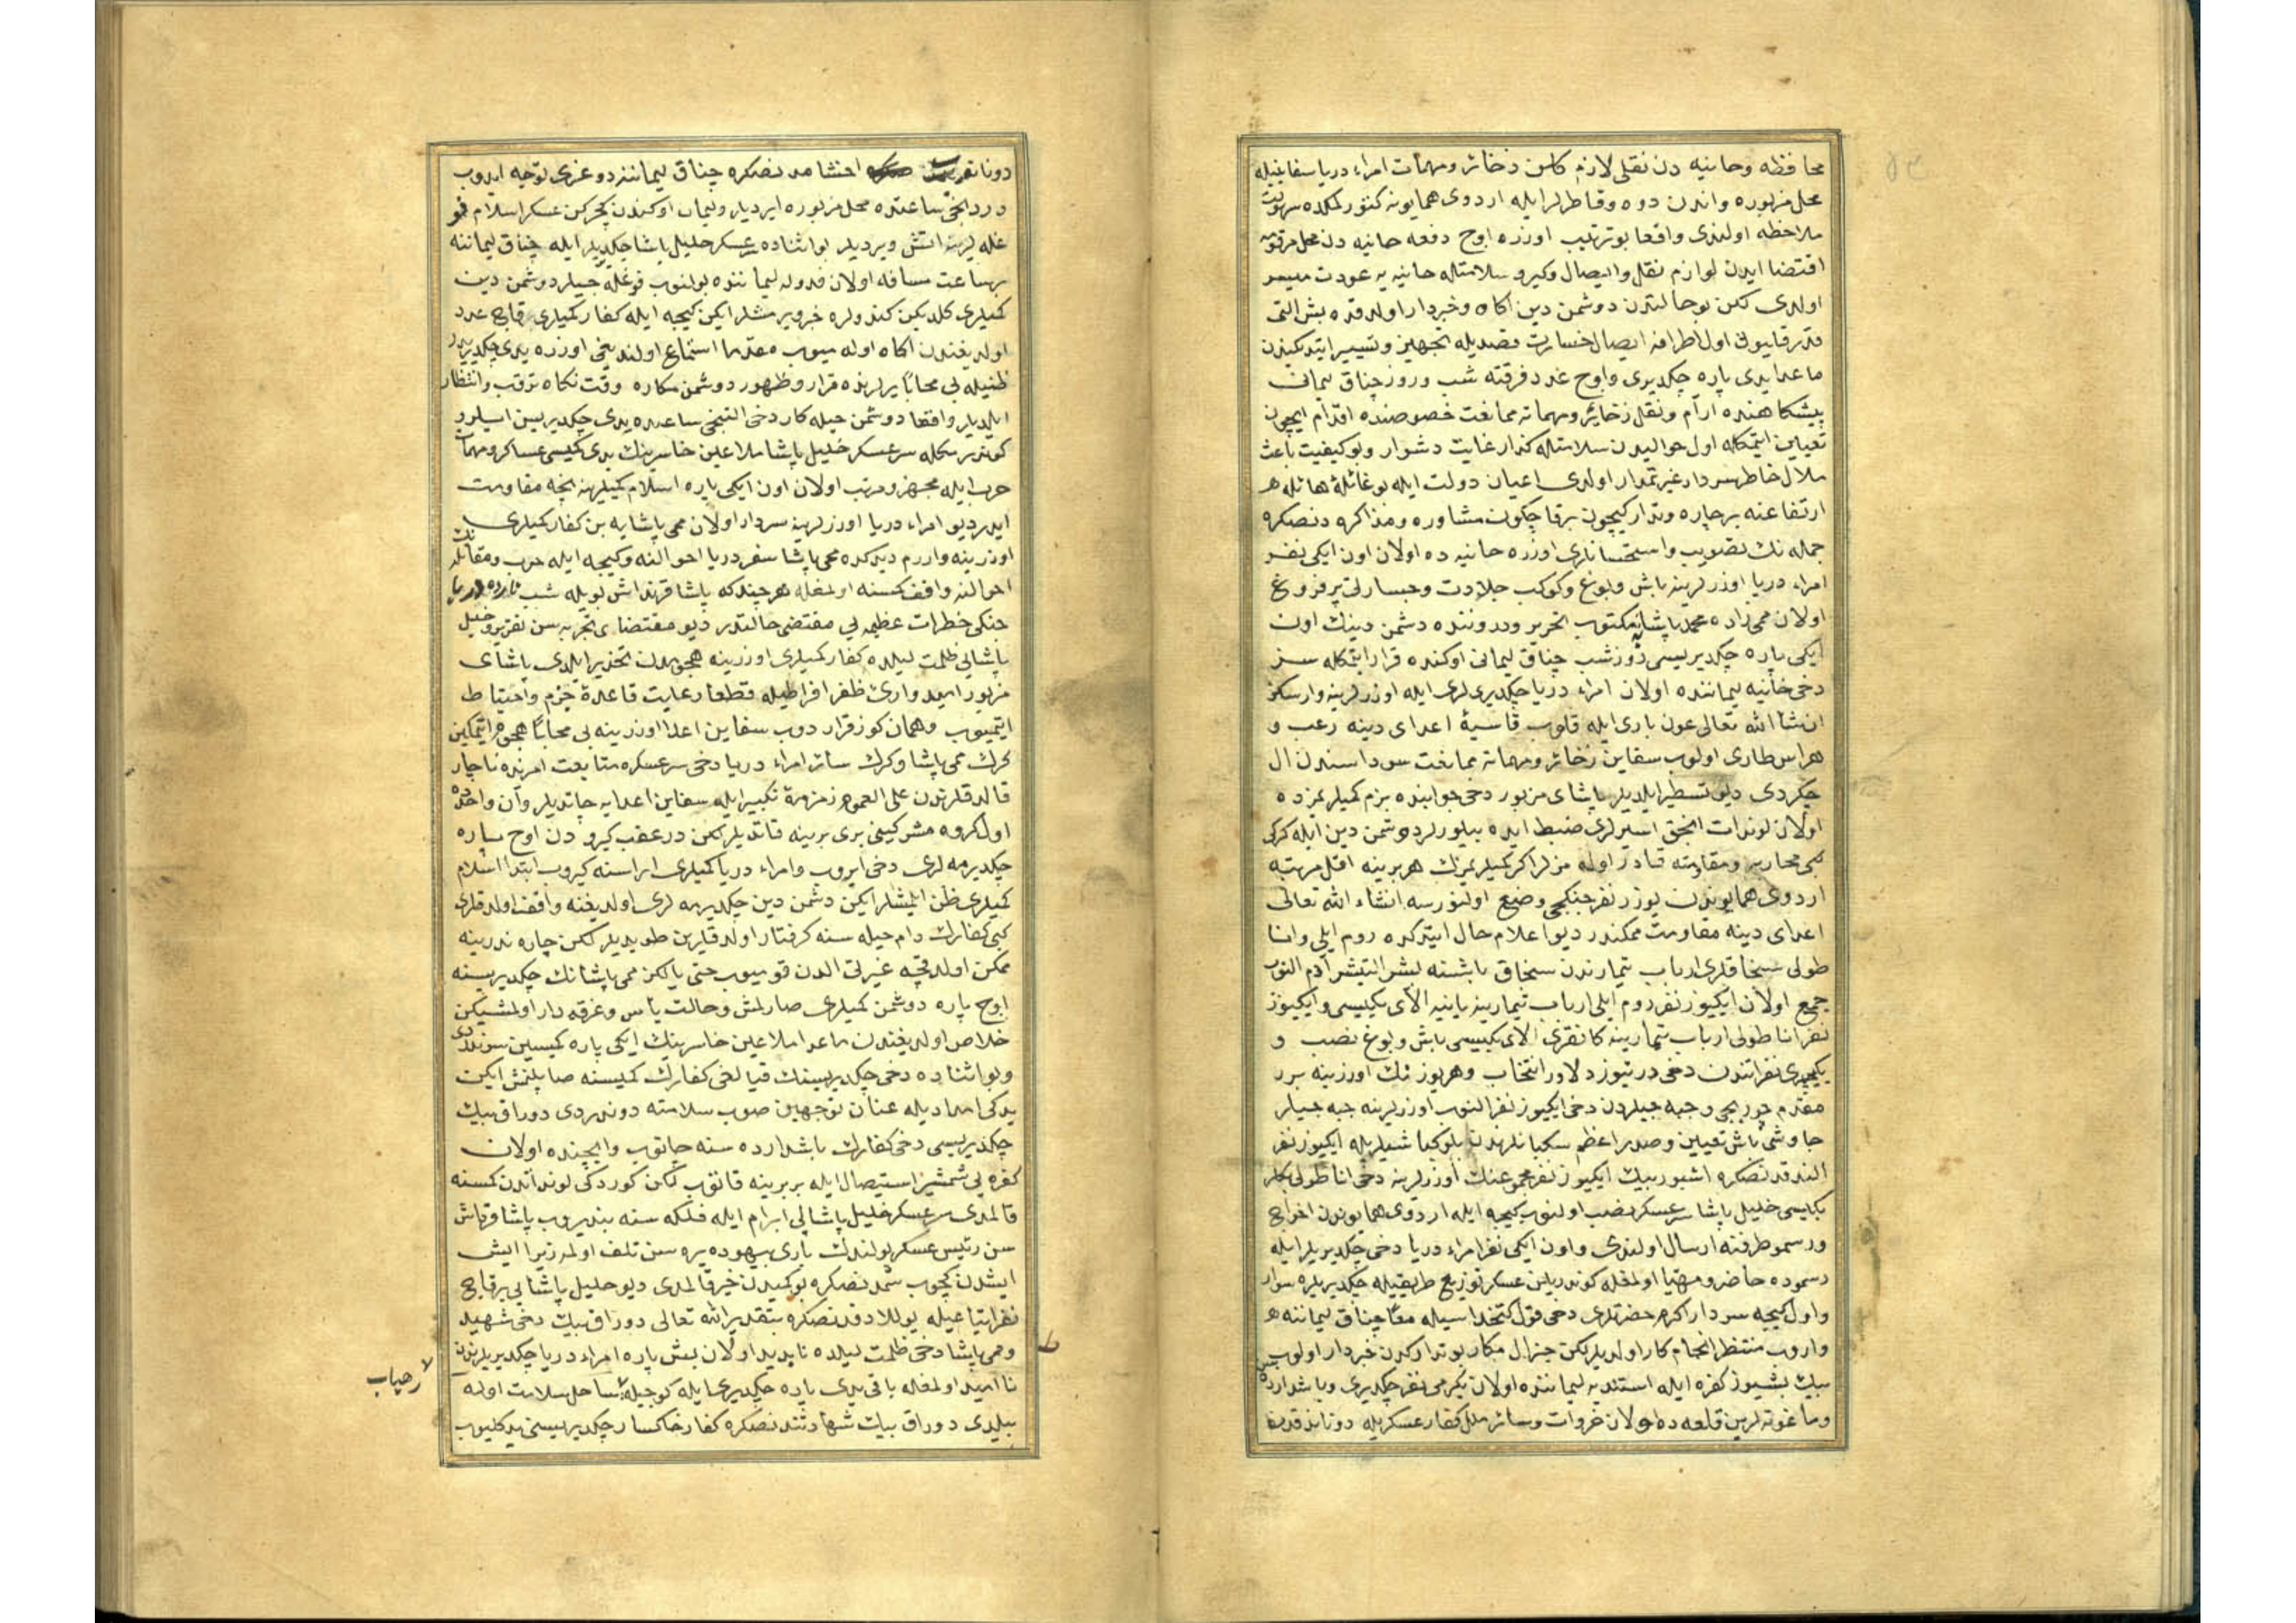 محافظه و حانیه دن نقلی لازم کلن ذخائر و مهمات امراء دریا سفاینیله
محل مزبوره واندن دوه و قاطرلر ایله اردوی همایونه کتورلمکده سهولت
ملاحظه اولندی واقعا بو ترتیب اوزره اوچ دفعه حانیه دن محل مرقومه
اقتضا ایدن لوازم نقل و ایصال و کیرو سلامتله حانیه یه عودت میسر
اولدی لکن بو حالتدن دوشمن دین اکاه و خبردار اولدقده بش التی
قدر قالیون اول اطرافه ایصال خسارت قصدیله تجهیز و تسییر ایتدکندن
ماعدا یدی پاره چکدیری و اوچ عدد فرقته شب و روز چناق لیمانی
پیشکاهنده ارام و نقل ذخائر و مهماته ممانعت خصوصنده اقدام ایچون
تعیین ایتمکله اول حوالیدن سلامتله کذار غایت دشوار و بو کیفیت باعث
ملال خاطر سردار غیرتمدار اولدی اعیان دولت ایله بو غائلهٔ هائله
ارتفاعنه بر چاره و تدارک ایچون برقاچ کون مشاوره و مذاکره دنصکره
جمله نك تصویب و استحسانلری اوزره حانیه ده اولان اون ایکی نفر
امراء دریا اوزرلرینه باش و بوغ و کوکب جلادت و جسارتی پرفروغ
اولان ممی زاده محمد پاشایه مکتوب تحریر و دروننده دشمن دینك اون
ایکی پاره چکدیریسی روز شب چناق لیمانی اوکنده قرار ایتمکله سز
دخی حانیه لیماننده اولان امراء دریا چکدیری لری ایله اوزرلرینه وارسکز
ان شاء الله تعالی عون باری ایله قلوب قاسیهٔ اعدای دینه رعب و
هراس طاری اولوب سفاین ذخائر و مهماته ممانعت سوداسندن ال
چکردی دیو تسطیر ایلدیلر پاشای مزبور دخی جوابنده بزم کمیلریمزده
اولان لوندات انجق اسیرلری ضبط ایده بیلورلر دوشمن دین ایله کرکی
کبی محاربه و مقاومته قادر اوله مزلر اکر کمیلریمزك هر برینه اقل مرتبه
اردوی همایوندن یوزر نفر جنکجی وضع اولنورسه انشاء الله تعالی
اعدای دینه مقاومت ممکندر دیو اعلام حال ایتدکده روم ایلی و انا
طولی سنجاقلری ارباب تیمارندن سنجاق باشنه بشر التیشر آدم النوب
جمع اولان ایکیوز نفر روم ایلی ارباب تیمارینه یانیه الای بکیسی و ایکیوز
نفر اناطولی ارباب تیمارینه کانقری الای بکیسی باش و بوغ نصب و
یکیچری نفراتندن دخی درتیوز دلاور انتخاب و هر یوزینك اوزرینه برر
مقدم چوربجی و جبه جیلردن دخی ایکیوز نفر النوب اوزرلرینه جبه جیلر
چاوشی باش تعیین و صدر اعظم سکبانلرندن بلوکباشیلریله ایکیوز نفر
الندقدنصکره اشبو بیك ایکیوز نفر مجموعنك اوزرلرینه دخی اناطولی بکلر
بکیسی خلیل پاشا سرعسکر نصب اولنوب کیجه ایله اردوی همایوندن اخراج
و رسمو طرفنه ارسال اولندی و اون ایکی نفر امراء دریا دخی چکدیریلر ایله
رسموده حاضر و مهیا اولمغله کوندریلن عسکر توزیع طریقیله چکدیریلره سوار
و اول کیجه سردار اکرم حضرتلری دخی قول کتخداسیله معا چناق لیماننه
واروب منتظر انجام کار اولدیلر لکن جنرال مکار بو تدارکدن خبردار اولوب
بیك بشیوز کفره ایله استندیه لیماننده اولان یکرمی نفر چکدیری و باشدارده
و ماغونه لرین قلعه ده اولان خروات و سائر ملل کفار عسکریله دوناندقدنصکره
دوناتدیروب اخشامدنصکره چناق لیماننه دوغری توجه ایدوب
دردنجی ساعتده محل مزبوره ایردیلر و لیمان اوکندن کچرکن عسکر اسلام قو
غله لرینه اتش ویردیلر بو اثناده سرعسکر خلیل پاشا چکدیریلر ایله چناق لیماننه
بر ساعت مسافه اولان فدوله لیماننده بولنوب قوغله جیلر دوشمن دین
کمیلری کلدیکن کندولره خبر ویرمشلر ایکن کیجه ایله کفار کمیلری قاچ عدد
اولدیغندن اکاه اوله میوب مقدما استماع اولندیغی اوزره یدی چکدیریدر
ظنیله بی محابا یرلرنده قرار و ظهور دوشمن مکاره وقت نکاه ترقب و انتظار
ایلدیلر واقعا دوشمن حیله کار دخی التنجی ساعتده یدی چکدیریسن ایلرو
کوندرمکله سرعسکر خلیل پاشا ملاعین خاسرینك یدی کمیسی عساکر و مهمات
حرب ایله مجهز و مرتب اولان اون ایکی پاره اسلام کمیلرینه نجه مقاومت
ایدر دیو امراء دریا اوزرلرینه سردار اولان ممی پاشایه بن کفار کمیلری
اوزرینه واررم دیدکده ممی پاشا سفر دریا احوالنه و کیجه ایله حرب و مقاتله نك
احوالنه واقف کمسنه اولمغله هر چندکه پاشا قرنداش بویله شب تارده دریا
جنکی خطرات عظیمه یی مقتضی حالتدر دیو مقتضای تجربه سن تقریر و خلیل
پاشایی ظلمت لیلده کفار کمیلری اوزرینه هجومدن تحذیر ایلدی پاشای
مزبور امید واری ظفر افراطیله قطعا رعایت قاعدهٔ حزم و احتیاط
ایتمیوب و همان کوز قرار دوب سفاین اعدا اوزرینه بی محابا هجوم ایتمکین
کرك ممی پاشا و کرك سائر امراء دریا دخی سرعسکره متابعت امرنده ناچار
قالدقلرندن علی العموم زمزمهٔ تکبیر ایله سفاین اعدایه چاتدیلر و آن واحده
اول کروه مشرکینی بری برینه قاتدیلر لکن در عقب کیرودن اوچ پاره
چکدیرمه لری دخی ایروب و امراء دریا کمیلری اراسنه کیروب ابتدا اسلام
کمیلری ظن ایلمشلر ایکن دشمن دین چکدیرمه لری اولدیغنه واقف اولدقلری
کبی کفارك دام حیله سنه کرفتار اولدقلرین طویدیلر لکن چاره ندر ینه
ممکن اولدقچه غیرتی الدن قومیوب حتی یالکز ممی پاشانك چکدیریسنه
اوچ پاره دوشمن کمیلری صارلمش و حالت یأس و غرقه دار اولمشیکن
خلاص اولدیغندن ماعدا ملاعین خاسرینك ایکی پاره کمیسین سوندردی
و بو اثناده دخی چکدیریسینك قیالغی کفارك کمیسنه صاپلنمش ایکن
یدکی امدادیله عنان توجهین صوب سلامته دوندردی دوراق بیك
چکدیریسی دخی کفارك باشدارده سنه چاتوب و ایچنده اولان
کفره یی شمشیر استیصال ایله بر برینه قاتوب لکن کوردکی لونداتدن کمسنه
قالمدی سرعسکر خلیل پاشایی ابرام ایله فلکه سنه بندیروب پاشا قرنداش
سن رئیس عسکر بولندك باری بیهوده یره سن تلف اولمه زیرا ایش
ایشدن کچوب شمدنصکره بو کمیدن خیر قالمدی دیو خلیل پاشایی برقاچ
نفر اتباعیله یوللادقدنصکره بتقدیر الله تعالی دوراق بیك دخی شهید
و ممی پاشا دخی ظلمت لیلده ناپدید اولان بش پاره امراء دریا چکدیریلرندن
نا امید اولمغله باقی یدی پاره چکدیری ایله کوجیله ساحل سلامت اوله
رهیاب
بیلدی دوراق بیك شهادتندنصکره کفار خاکسار چکدیریسنی یدکلیوب